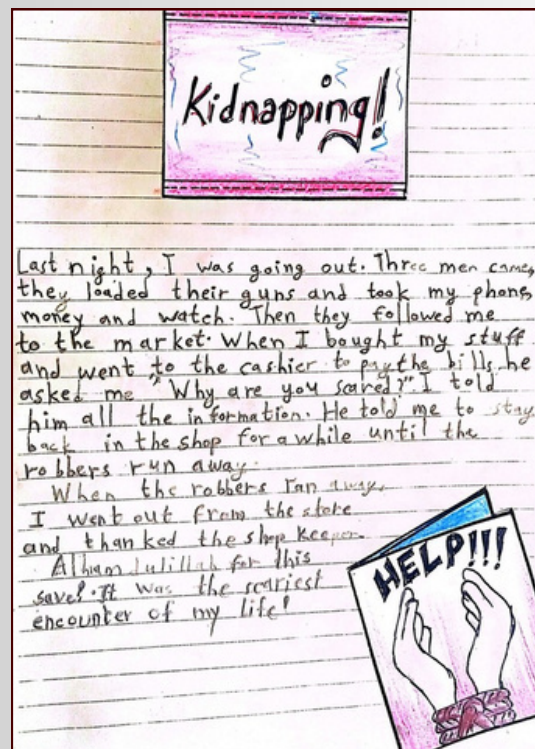 Kidnapping!
Last night, I was going out. Three men came,
they loaded their guns and took my phone,
money and watch. Then they followed me
to the market. When I bought my stuff
and went to the cashier to pay the bills, he
asked me "Why are you scared?". I told
him all the information. He told me to stay
back in the shop for a while until the
robbers run away.
When the robbers ran away,
I went out from the store
and thanked the shop keeper.
Alhamdulillah for this
save! It was the scariest
encounter of my life!
HELP!!!